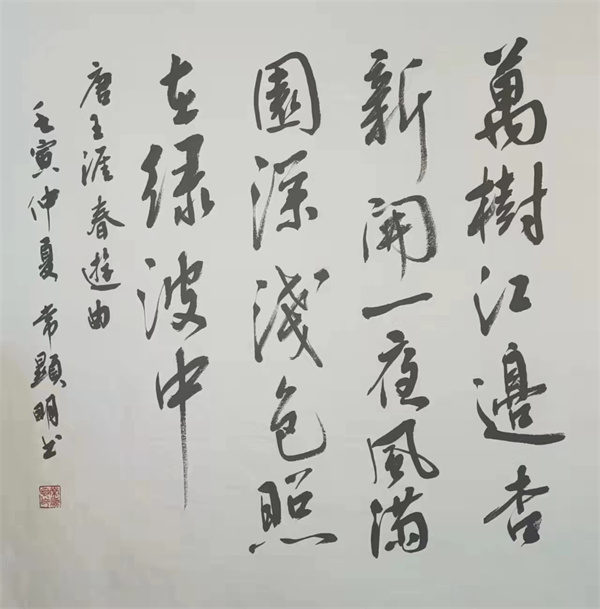 萬樹江邊杏
新開一夜風滿
園深淺色照
在緑波中
唐王涯春遊曲
壬寅仲夏常顯明书